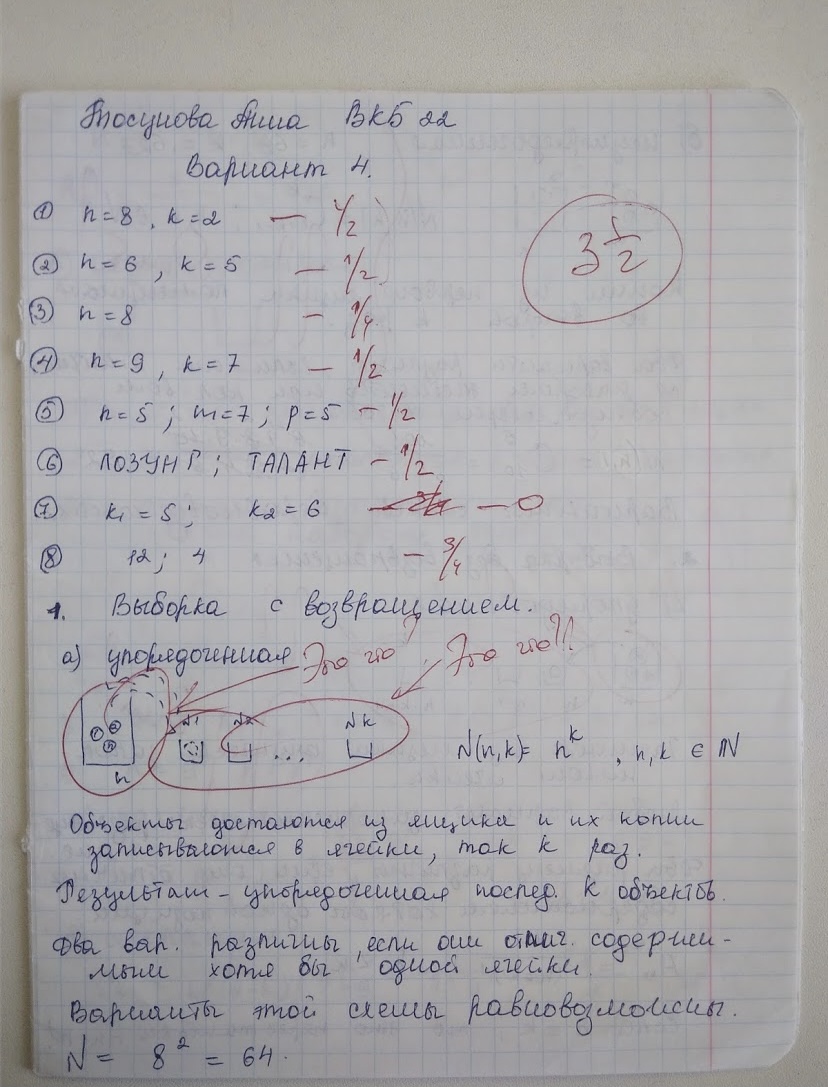 Тосунова Анна ВКБ 22
Вариант 4.
① n=8, k=2 — 1/2
3 1/2
② n=6, k=5 — 1/2
③ n=8 — 1/4
④ n=9, k=7 — 1/2
⑤ n=5; m=7; p=5 — 1/2
⑥ ЛОЗУНГ; ТАЛАНТ — 1/2
⑦ k₁=5; k₂=6 — 0
⑧ 12; 4 — 3/4
1. Выборка с возвращением.
а) упорядоченная Это что? Это что?!!
N1 N2 Nk
1 2 3 ... N(n,k)= n^k, n,k ∈ ℕ
n
Объекты достаются из ящика и их копии
записываются в ячейки, так k раз.
Результат - упорядоченная послед. k объектов.
Два вар. различны, если они отлич. содержи-
мым хотя бы одной ячейки.
Варианты этой схемы равновозможны.
N = 8² = 64.